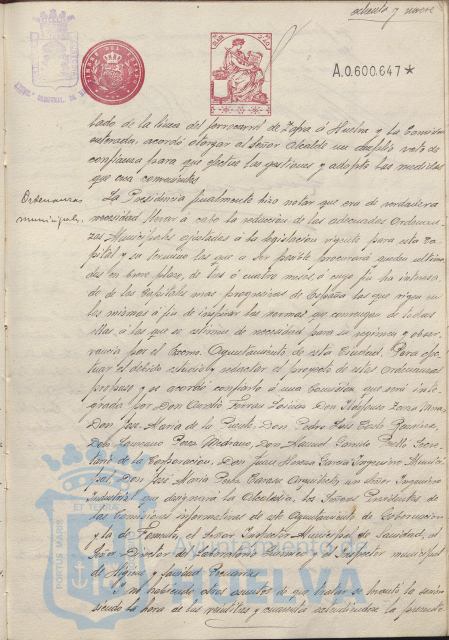 ochenta y nueve
A.0.600.647*
tado de la linea del ferrocarril de Zafra á Huelva y la Comisión
enterada, acordó otorgar al Señor Alcalde un amplio voto de
confianza para que efectue las gestiones y adopte las medidas
que crea convenientes
Ordenanzas
municipales.
La Presidencia finalmente hizo notar que era de verdadera
necesidad llevar á cabo la redacción de las adecuadas Ordenan-
zas Municipales ajustadas á la legislación vigente para esta Ca-
pital y su término las que a ser posible procurará queden ultima-
das en breve plazo, de tres ó cuatro meses, á cuyo fin ha interesa-
do de las Capitales mas progresivas de España las que rigen en
las mismas á fin de inspirar las normas que convengan de todas
ellas, á las que se estimen de necesidad para su regimen y obser-
vancia por el Excmo. Ayuntamiento de esta Ciudad. Para efec-
tuar el debido estudio y redactar el proyecto de estas Ordenanzas
propuso y se acordó confiarlo á una Comisión que será inte-
grada por Don
Don José María de la Puente, Don Pedro
Don Laureano Perez Medrano, Don Manuel Garrido Perelló Secre-
tario de la Corporación, Don Juan García Ingeniero Munici-
pal, Don José María Perez Carasa Arquitecto, un Señor Ingeniero
Industrial que designará la Alcaldia, los Señores Presidentes de
las Comisiones informativas de este Ayuntamiento de Gobernación
y la de Fomento, el Señor Inspector Municipal de Sanidad, el
Señor Director del Laboratorio Químico y el Inspector municipal
de Higiene y Sanidad Pecuarias.
Y no habiendo otros asuntos de que tratar se levantó la sesión
siendo la hora de las veintitres y cuarenta extendiendose la presente
PORTUS MARIS
ET TERRAE
Ayuntamiento de
HUELVA